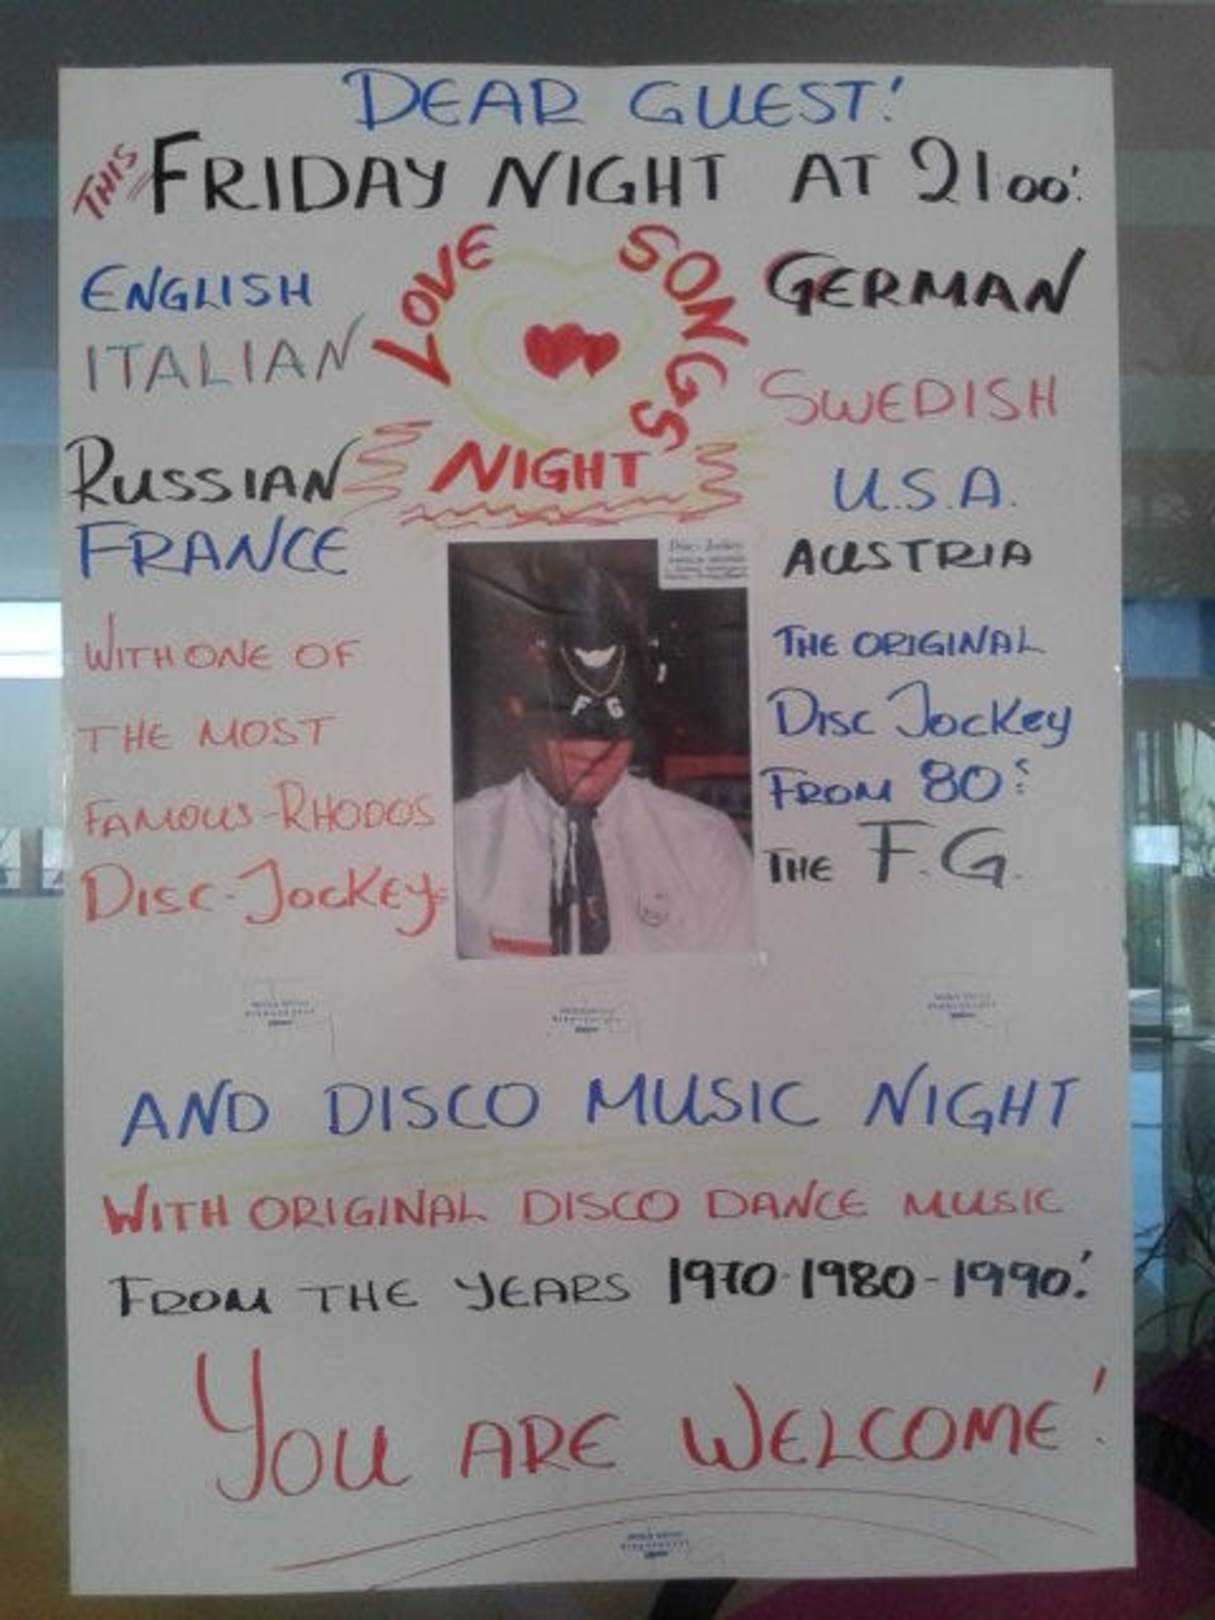 DEAR GUEST!
THIS FRIDAY NIGHT AT 21:00!
LOVE SONGS
NIGHT
ENGLISH
ITALIAN
RUSSIAN
FRANCE
GERMAN
SWEDISH
U.S.A.
AUSTRIA
WITH ONE OF
THE MOST
FAMOUS-RHODOS
DISC-JOCKEYS
Disc-Jockey
F G
THE ORIGINAL
DISC JOCKEY
FROM 80s
THE F.G.
AND DISCO MUSIC NIGHT
WITH ORIGINAL DISCO DANCE MUSIC
FROM THE YEARS 1970-1980-1990!
YOU ARE WELCOME!